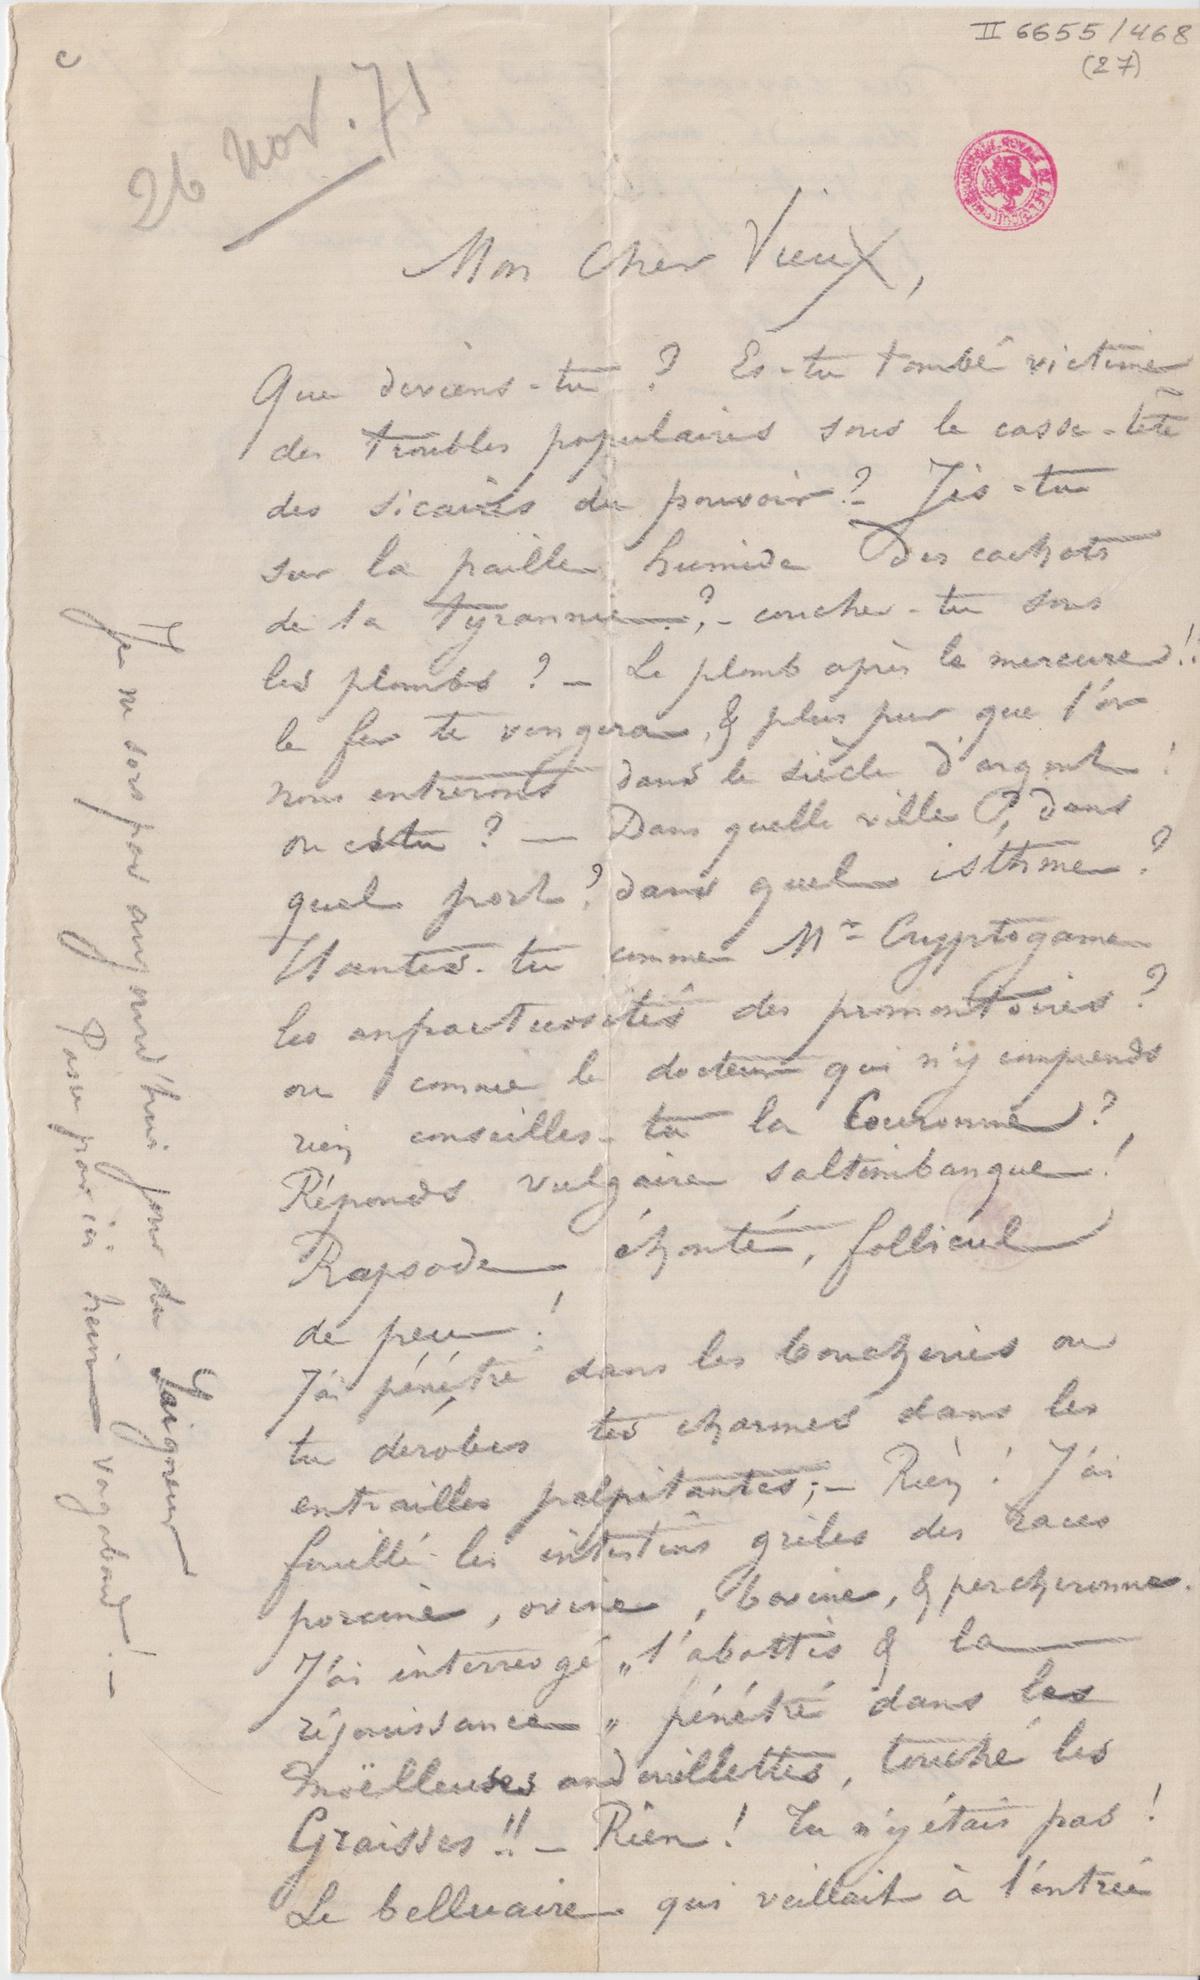 II 6655/468
(27)
c
26 nov. 71
Mon Cher Vieux,
Que deviens-tu ? Es-tu tombé victime
des troubles populaires sous le casse-tête
des sicaires du pouvoir ? – Jis-tu
sur la paille humide Des cachots
de la tyrannie ? – couches-tu sous
les plombs ? – Le plomb après le mercure !!
le fer te vengera, & plus pur que l'or
nous entrerons dans le siècle d'argent !
ou es tu ? – Dans quelle ville ?, dans
quel port ? dans quel isthme ?
Hantes-tu comme Mr Cryptogame
les anfractuosités des promontoires ?
ou comme le docteur qui n'y comprends
rien conseilles-tu la Couronne ?
Réponds vulgaire saltimbanque !
Rapsode éhonté, follicul
de peu !
J'ai pénétré dans les boucheries ou
tu dérobes tes charmes dans les
entrailles palpitantes ; – Rien ! J'ai
fouillé les intestins grêles des races
porcine, ovine, bovine, & percheronne.
J'ai interrogé „l'abattis & la
réjouissance„ pénétré dans les
moëlleuses andouillettes, touché les
Graisses !! – Rien ! Tu n'y étais pas !
Le belluaire qui veillait à l'entrée
Je ne sors pas aujourd'hui jour du Saigneur
Passe par ici hein vagabond ! –